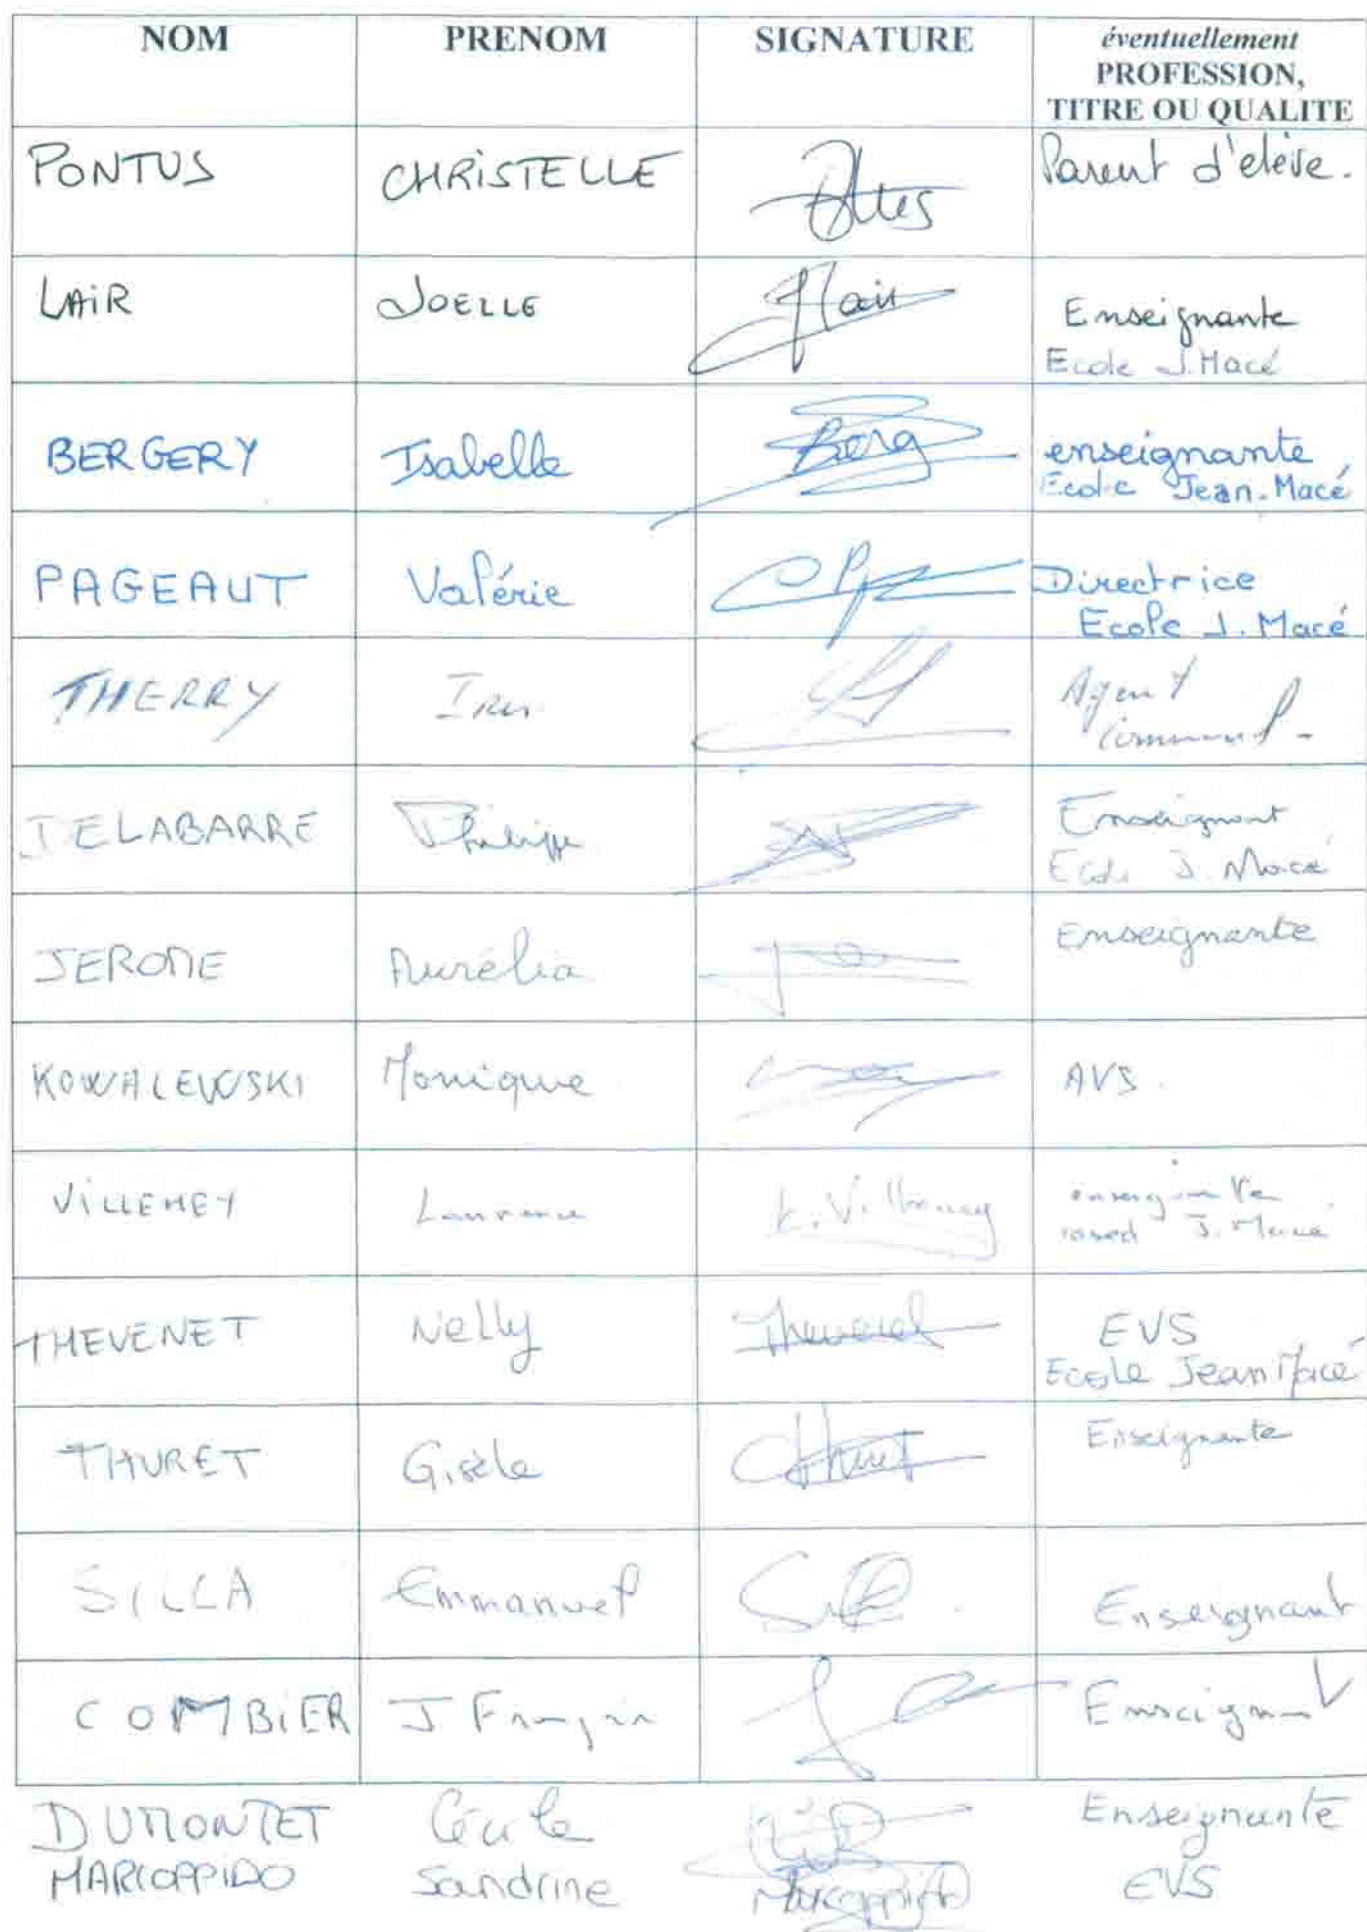 NOM PRENOM SIGNATURE éventuellement
PROFESSION,
TITRE OU QUALITE
PONTUS CHRISTELLE Parent d'elève.
LAIR JOELLE Hair Enseignante
Ecole J. Macé
BERGERY Isabelle Berg enseignante
Ecole Jean-Macé
PAGEAUT Valérie Directrice
Ecole J. Macé
THERRY Iris Agent
Communal
DELABARRE Philippe Enseignant
Ecole J. Macé
JEROME Aurélia Enseignante
KOWALEWSKI Monique AVS.
VILLEMEY Laurence L. Villemey enseignante
rased J. Macé
THEVENET Nelly Thevenet EVS
Ecole Jean Macé
THURET Gisèle Thuret Enseignante
SILLA Emmanuel Enseignant
COMBIER J François Enseignant
DUMONTET Cécile Enseignante
MARCOPPIDO Sandrine Marcoppido EVS